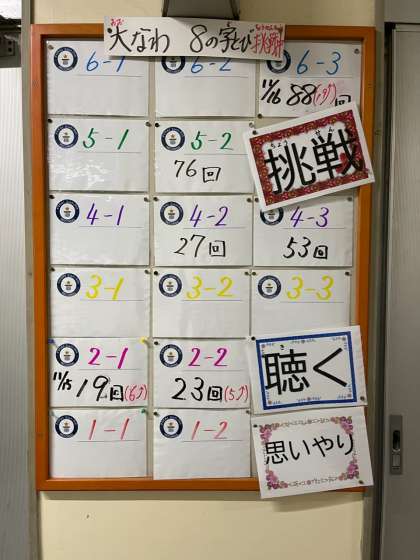 大なわ 8の字とび 挑戦中
おお ちょうせんちゅう
6-1 6-2 6-3
11/16 88回
5-1 5-2
76回
ちょう せん
挑戦
4-1 4-2 4-3
27回 53回
3-1 3-2 3-3
2-1 2-2
11/15 19回(6分) 23回(5分)
き
聴く
1-1 1-2
思いやり